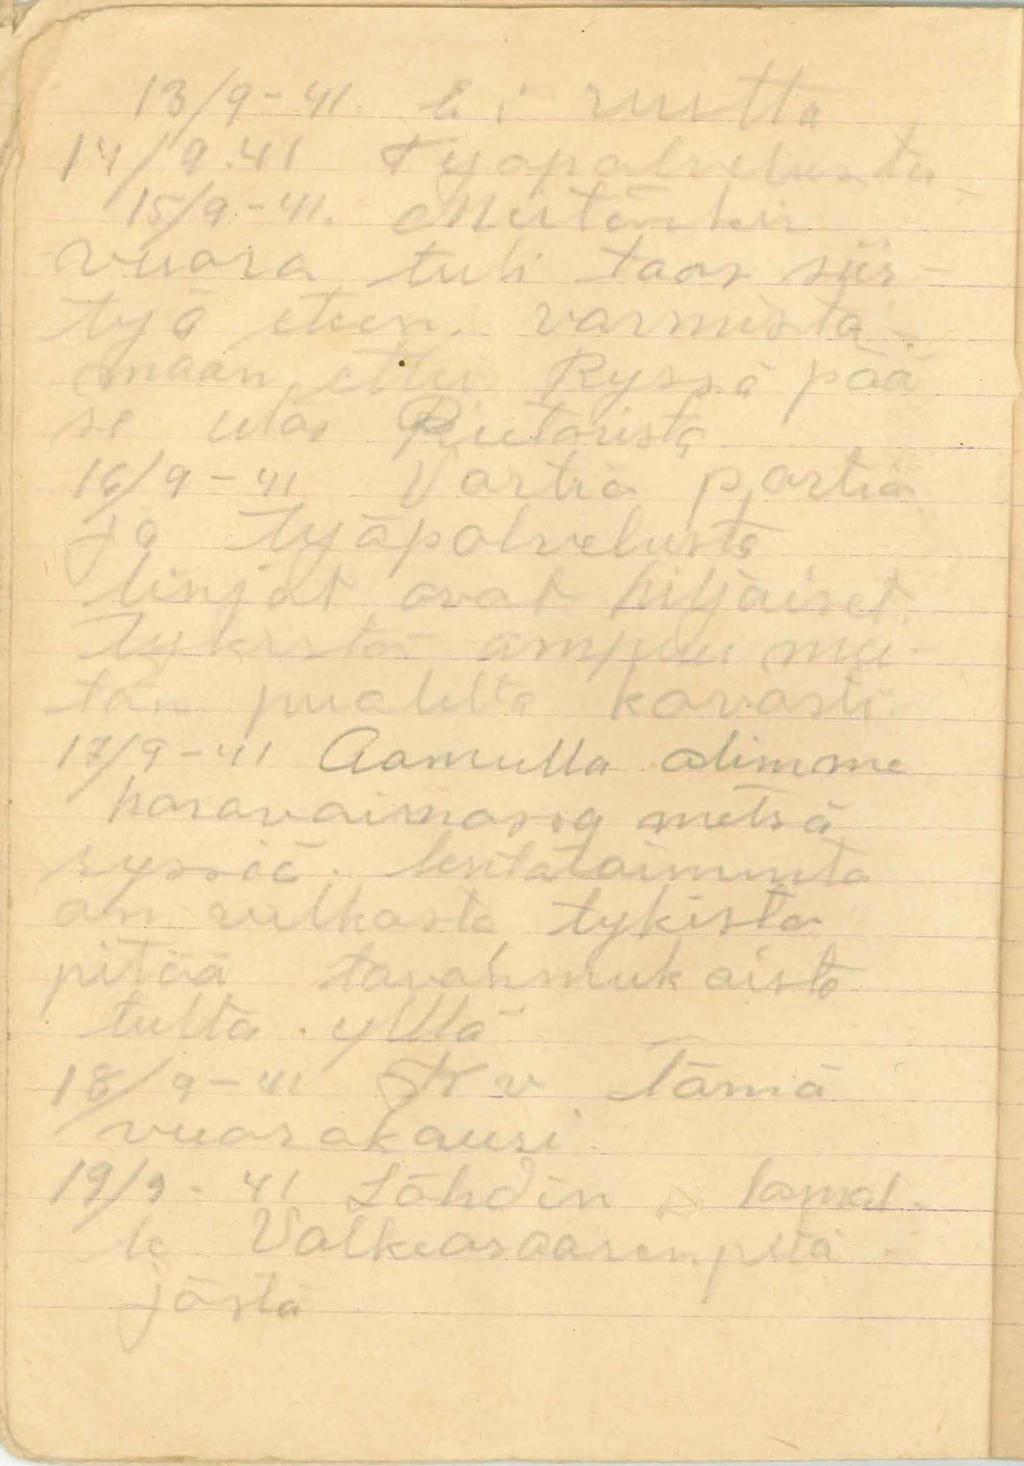 13/9-41. Ei uutta
14/9.41 Työpalvelusta
15/9-41. Meitänkin
vuora tuli taas siir-
tyä eteen. varmista-
maan, ettei Ryssä pää
se ulos
16/9-41 Vartia partia
ja työpalvelusta
linjat ovat hiljaiset.
tykistö ampuu mei-
tän puolelta kovasti.
17/9-41 Aamulla olimme
haravoimassa metsä
ryssiä. lentotoiminta
on vilkasta tykistö
pitää tavanmukaista
tulta . yllä
18/9-41 Kv Tämä
vuorokausi.
19/9-41 Lähdin lomal-
le Valkeasaarenpitä-
jästä